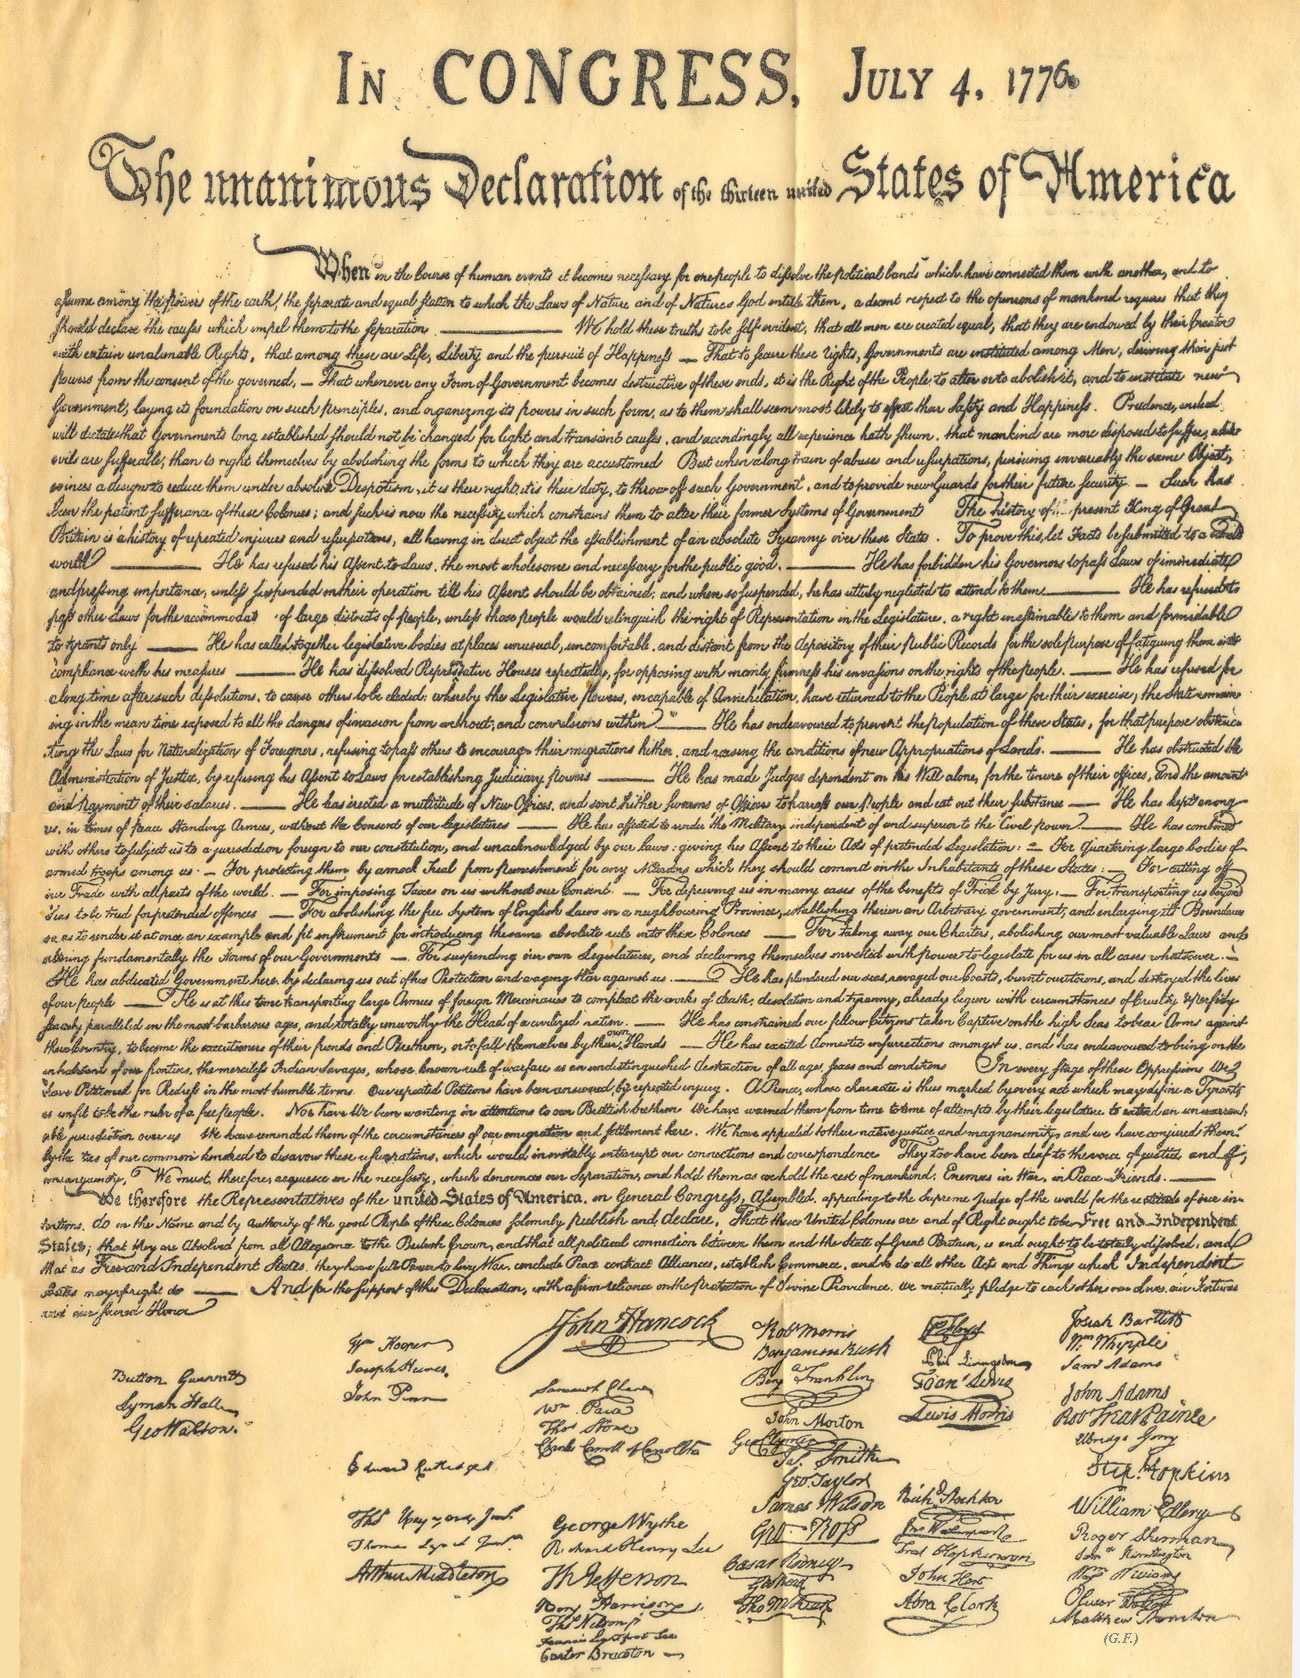 In CONGRESS, July 4, 1776.
The unanimous Declaration of the thirteen united States of America
When in the Course of human events it becomes necessary for one people to dissolve the political bands which have connected them with another, and to
assume among the powers of the earth, the separate and equal station to which the Laws of Nature and of Nature's God entitle them, a decent respect to the opinions of mankind requires that they
should declare the causes which impel them to the separation. We hold these truths to be self evident, that all men are created equal, that they are endowed by their Creator
with certain unalienable Rights, that among these are Life, Liberty and the pursuit of Happiness — That to secure these rights, Governments are instituted among Men, deriving their just
powers from the consent of the governed, — That whenever any Form of Government becomes destructive of these ends, it is the Right of the People to alter or to abolish it, and to institute new
Government, laying its foundation on such principles, and organizing its powers in such form, as to them shall seem most likely to effect their Safety and Happiness. Prudence, indeed
will dictate that Governments long established should not be changed for light and transient causes, and accordingly all experience hath shewn, that mankind are more disposed to suffer, while
evils are sufferable, than to right themselves by abolishing the forms to which they are accustomed But when a long train of abuses and usurpations, pursuing invariably the same Object,
evinces a design to reduce them under absolute Despotism, it is their right, it is their duty, to throw off such Government, and to provide new Guards for their future security — Such has
been the patient sufferance of these Colonies; and such is now the necessity which constrains them to alter their former Systems of Government The history of present King of Great
Britain is a history of repeated injuries and usurpations, all having in direct object the establishment of an absolute Tyranny over these States. To prove this, let Facts be submitted to a candid
world He has refused his Assent to Laws, the most wholesome and necessary for the public good. He has forbidden his Governors to pass Laws of immediate
and pressing importance, unless suspended in their operation till his Assent should be obtained; and when so suspended, he has utterly neglected to attend to them He has refused to
pass other Laws for the accommodat of large districts of people, unless those people would relinquish the right of Representation in the Legislature, a right inestimable to them and formidable
to tyrants only He has called together legislative bodies at places unusual, uncomfortable, and distant from the depository of their Public Records for the sole purpose of fatiguing them into
compliance with his measures He has dissolved Representative Houses repeatedly, for opposing with manly firmness his invasions on the rights of the people. He has refused for
a long time after such dissolutions, to cause others to be elected; whereby the Legislative powers, incapable of Annihilation, have returned to the People at large for their exercise; the State remain
ing in the mean time exposed to all the dangers of invasion from without, and convulsions within He has endeavoured to prevent the population of these States, for that purpose obstruc
ting the Laws for Naturalization of Foreigners, refusing to pass others to encourage their migrations hither, and raising the conditions of new Appropriations of Lands. He has obstructed the
Administration of Justice, by refusing his Assent to Laws for establishing Judiciary powers He has made Judges dependent on his Will alone, for the tenure of their offices, and the amount
and payment of their salaries. He has erected a multitude of New Offices, and sent hither swarms of Officers to harrass our People and eat out their substance He has kept among
us, in times of peace Standing Armies, without the Consent of our legislatures He has affected to render the Military independent of and superior to the Civil power He has combined
with others to subject us to a jurisdiction foreign to our constitution, and unacknowledged by our laws; giving his Assent to their Acts of pretended Legislation: — For quartering large bodies of
armed troops among us: — For protecting them by a mock Trial from punishment for any Murders which they should commit on the Inhabitants of these States: For cutting off
our Trade with all parts of the world. For imposing Taxes on us without our Consent. For depriving us in many cases of the benefits of Trial by Jury; For transporting us beyond
Seas to be tried for pretended offences For abolishing the free System of English Laws in a neighbouring Province, establishing therein an Arbitrary government, and enlarging its Boundaries
so as to render it at once an example and fit instrument for introducing the same absolute rule into these Colonies For taking away our Charters, abolishing our most valuable Laws and
altering fundamentally the Forms of our Governments — For suspending our own Legislatures, and declaring themselves invested with power to legislate for us in all cases whatsoever. —
He has abdicated Government here, by declaring us out of his Protection and waging War against us He has plundered our seas, ravaged our Coasts, burnt our towns, and destroyed the lives
of our people He is at this time transporting large Armies of foreign Mercenaries to compleat the works of death, desolation and tyranny, already begun with circumstances of Cruelty & perfidy
scarcely paralleled in the most barbarous ages, and totally unworthy the Head of a civilized nation. He has constrained our fellow Citizens taken Captive on the high Seas to bear Arms against
their Country, to become the executioners of their friends and Brethren, or to fall themselves by their own Hands He has excited domestic insurrections amongst us, and has endeavoured to bring on the
inhabitants of our frontiers, the merciless Indian Savages, whose known rule of warfare is an undistinguished destruction of all ages, sexes and conditions In every stage of these Oppressions We
have Petitioned for Redress in the most humble terms Our repeated Petitions have been answered by repeated injury. A Prince, whose character is thus marked by every act which may define a Tyrant,
is unfit to be the ruler of a free people. Nor have We been wanting in attentions to our Brittish brethren We have warned them from time to time of attempts by their legislature to extend an unwarrant
able jurisdiction over us We have reminded them of the circumstances of our emigration and settlement here. We have appealed to their native justice and magnanimity, and we have conjured them
by the ties of our common kindred to disavow these usurpations, which would inevitably interrupt our connections and correspondence They too have been deaf to the voice of justice and of
consanguinity. We must, therefore, acquiesce in the necessity, which denounces our Separation, and hold them as we hold the rest of mankind, Enemies in War, in Peace Friends.
We therefore the Representatives of the united States of America, in General Congress, Assembled, appealing to the Supreme Judge of the world for the rectitude of our in
tentions, do in the Name and by authority of the good People of these Colonies solemnly publish and declare, That these United Colonies are and of Right ought to be Free and Independent
States; that they are Absolved from all Allegiance to the British Crown, and that all political connection between them and the State of Great Britain, is and ought to be totally dissolved, and
that as Free and Independent States, they have full Power to levy War, conclude Peace contract Alliances, establish Commerce, and to do all other Acts and Things which Independent
States may of right do And for the support of this Declaration, with a firm reliance on the protection of Divine Providence, we mutually pledge to each other our Lives, our Fortunes
and our Sacred Honor
Button Gwinnett
Lyman Hall
Geo Walton.
Wm Hooper
Joseph Hewes,
John Penn
Edward Rutledge
Thos Heyward Junr.
Thomas Lynch Junr.
Arthur Middleton
John Hancock
Samuel Chase
Wm Paca
Thos Stone
Charles Carroll of Carrollton
George Wythe
Richard Henry Lee
Th Jefferson
Benj Harrison
Thos Nelson jr
Francis Lightfoot Lee
Carter Braxton
Robt Morris
Benjamin Rush
Benj a Franklin
John Morton
Geo Clymer
Jas. Smith
Geo. Taylor
James Wilson
Geo. Ross
Caesar Rodney
Geo Read
Tho M:Kean
Phil Livingston
Frans Lewis
Lewis Morris
Richd Stockton
Jno Witherspoon
Fras Hopkinson
John Hart
Abra Clark
Josiah Bartlett
Wm Whipple
Saml Adams
John Adams
Robt Treat Paine
Elbridge Gerry
Step. Hopkins
William Ellery
Roger Sherman
Saml Huntington
Wm Williams
Oliver Wolcott
Matthew Thornton
(G.F.)